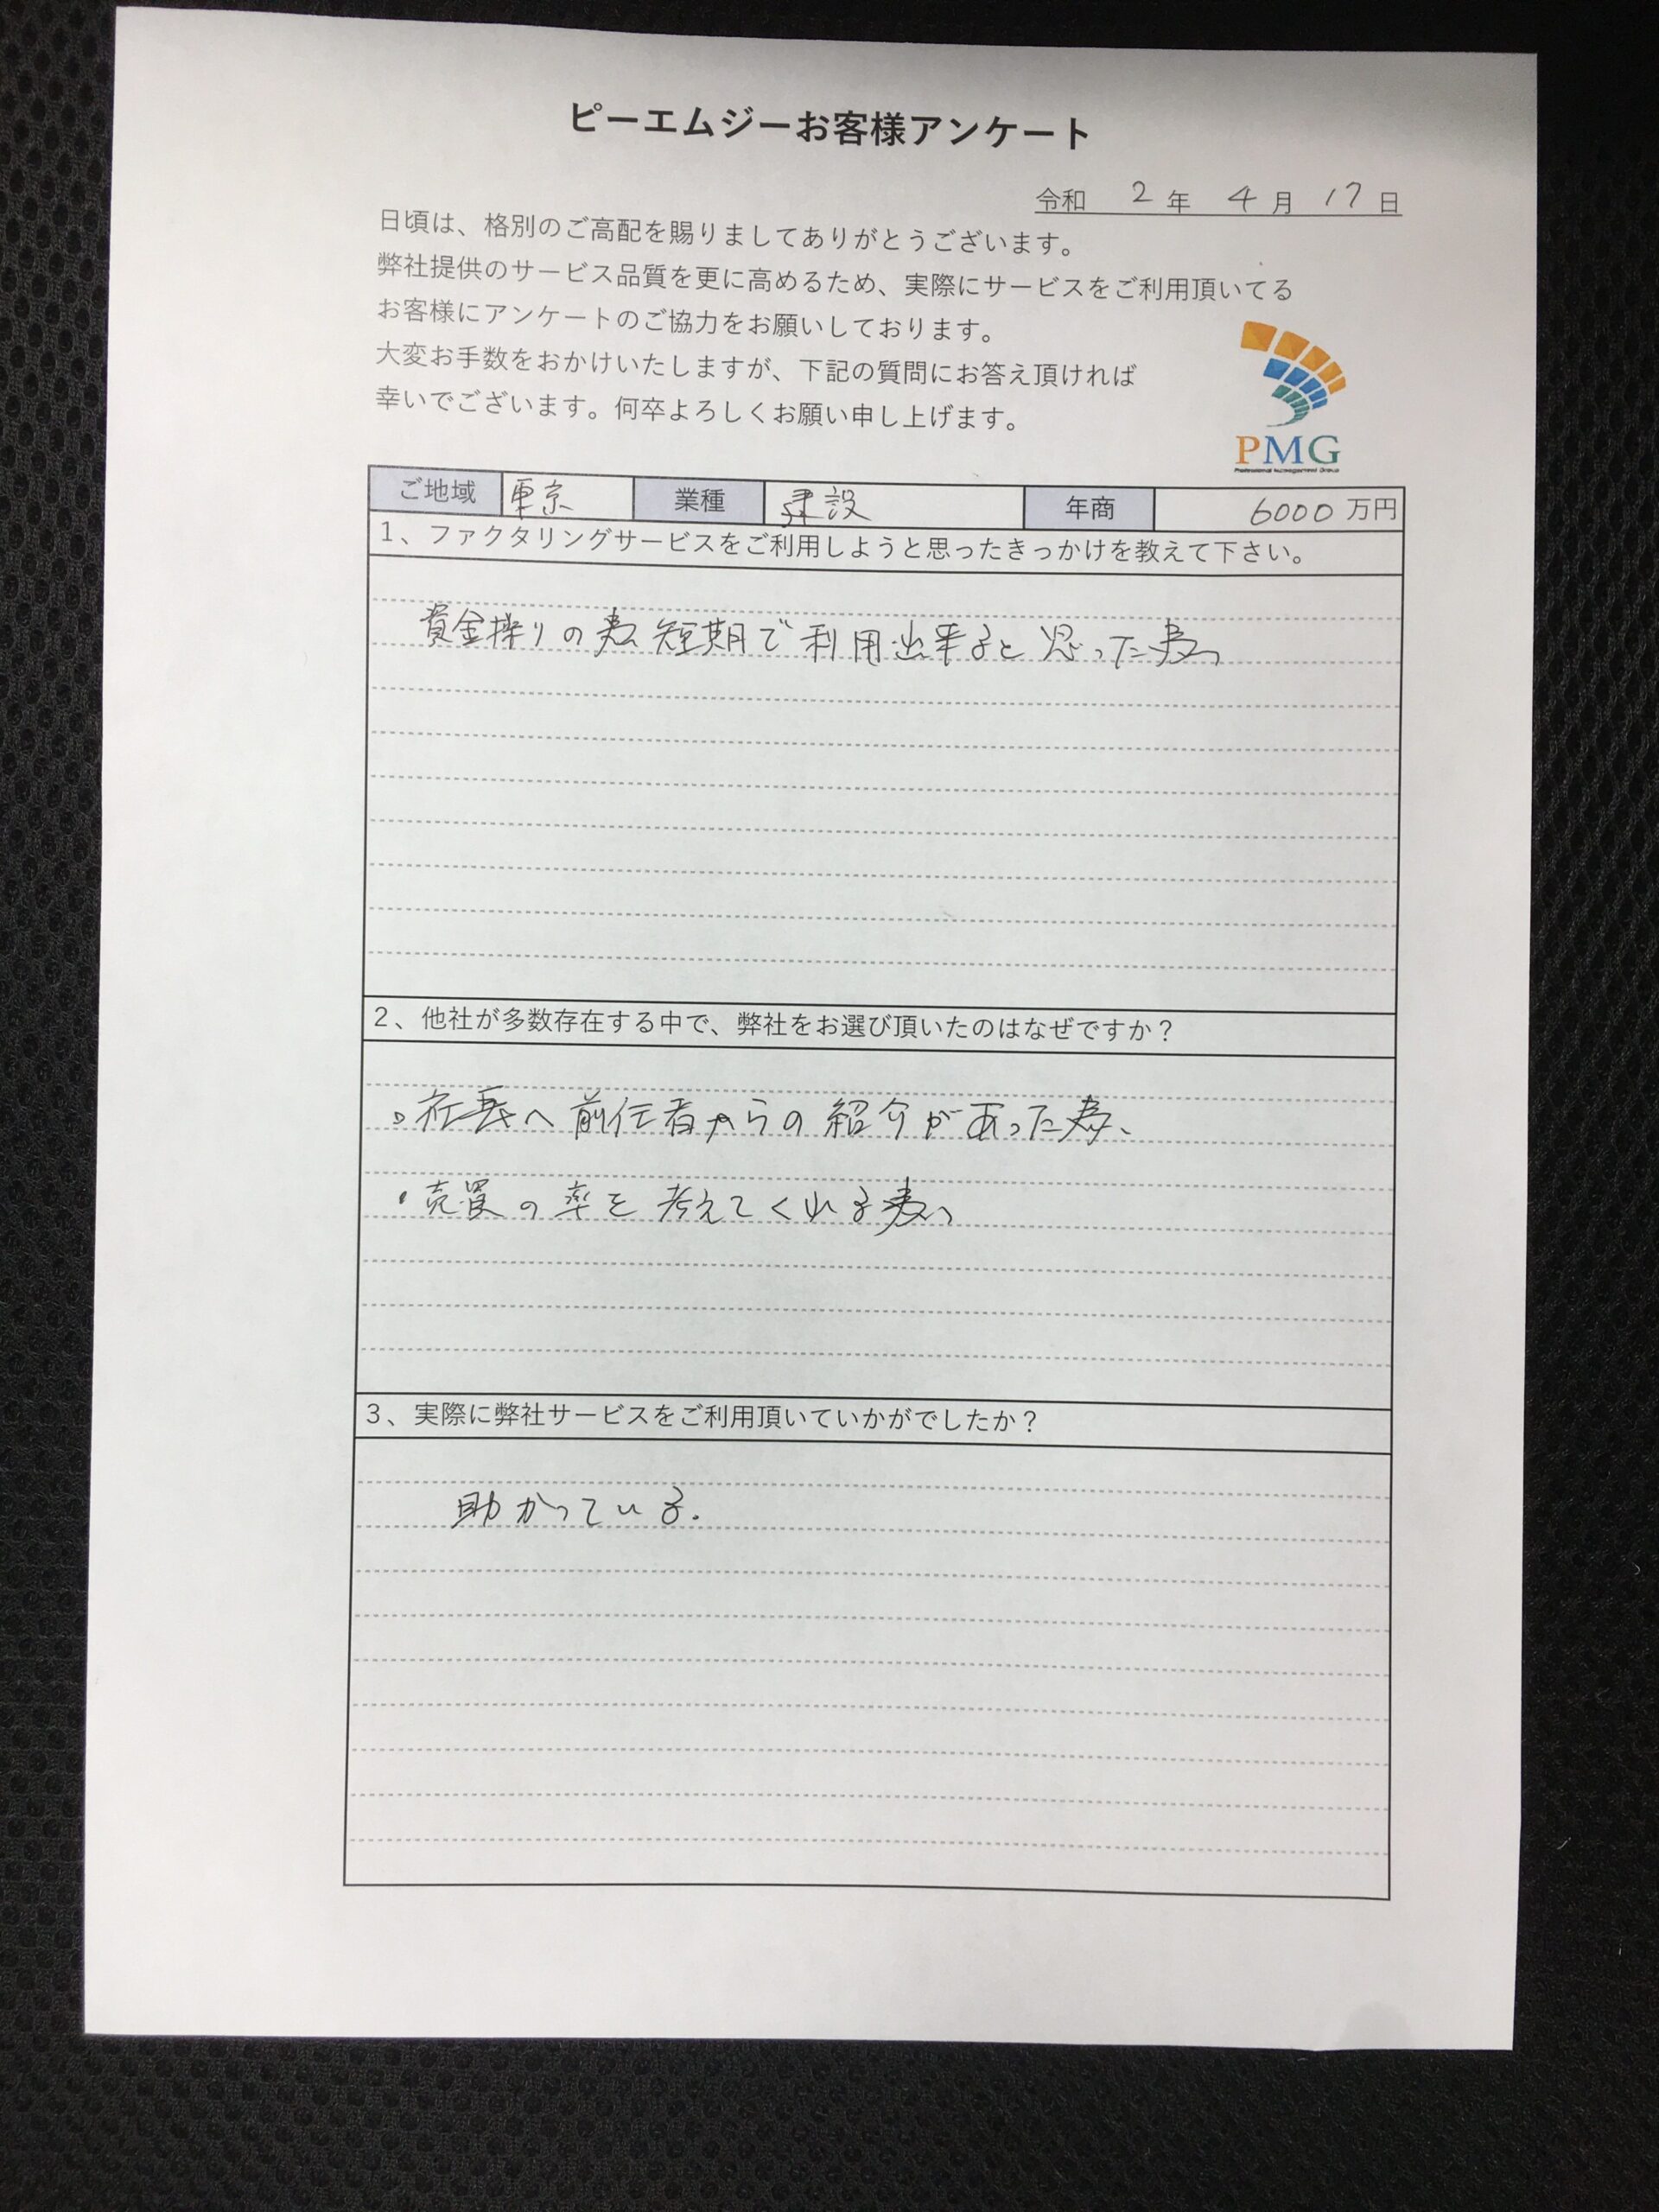 ピーエムジーお客様アンケート
令和 2 年 4 月 17 日
日頃は、格別のご高配を賜りましてありがとうございます。
弊社提供のサービス品質を更に高めるため、実際にサービスをご利用頂いてる
お客様にアンケートのご協力をお願いしております。
大変お手数をおかけいたしますが、下記の質問にお答え頂ければ
幸いでございます。何卒よろしくお願い申し上げます。
PMG
Professional Management Group
ご地域 東京 業種 建設 年商 6000 万円
1、ファクタリングサービスをご利用しようと思ったきっかけを教えて下さい。
資金操りの為短期で利用出来ると思った為。
2、他社が多数存在する中で、弊社をお選び頂いたのはなぜですか？
。社長へ前任者からの紹介があった為、
・売買の率を考えてくれる為。
3、実際に弊社サービスをご利用頂いていかがでしたか？
助かっている.